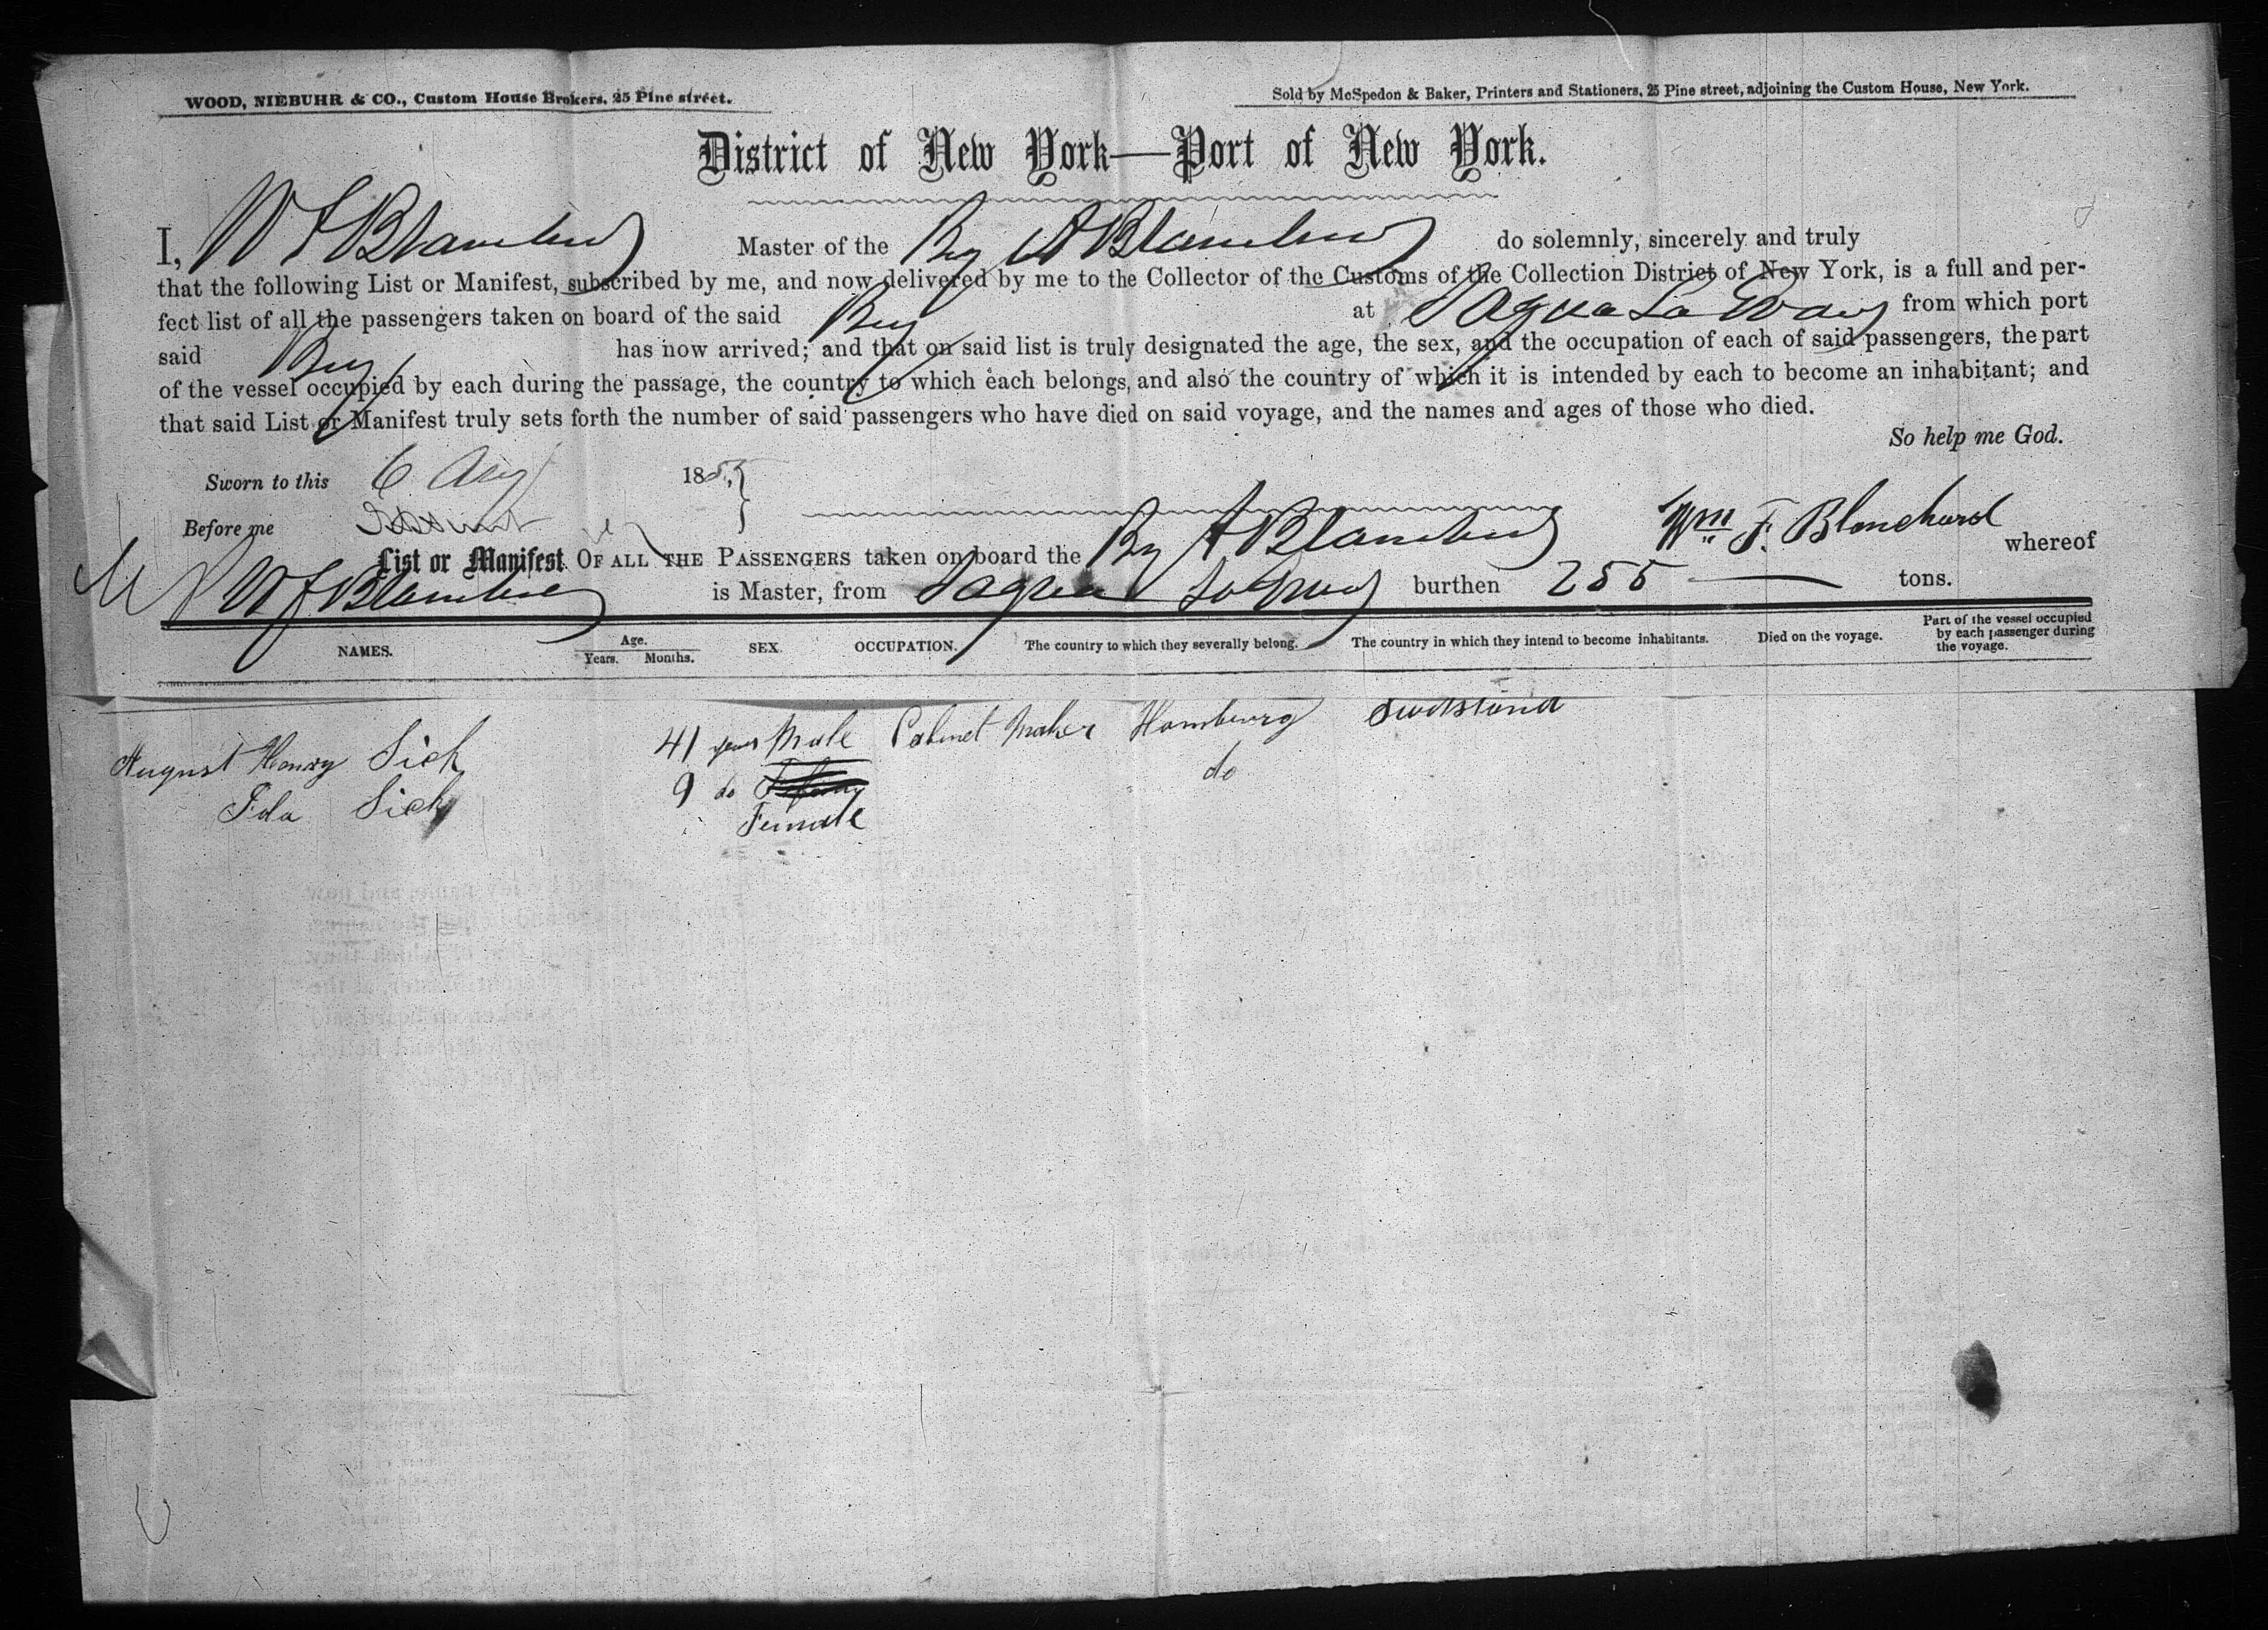 WOOD, NIEBUHR & CO., Custom House Brokers, 25 Pine street.
Sold by McSpedon & Baker, Printers and Stationers, 25 Pine street, adjoining the Custom House, New York.
District of New York—Port of New York.
I, W F Blanchard Master of the Brg A Blanchard do solemnly, sincerely and truly
that the following List or Manifest, subscribed by me, and now delivered by me to the Collector of the Customs of the Collection District of New York, is a full and per-
fect list of all the passengers taken on board of the said Brg at Sagua La Grand from which port
said Brg has now arrived; and that on said list is truly designated the age, the sex, and the occupation of each of said passengers, the part
of the vessel occupied by each during the passage, the country to which each belongs, and also the country of which it is intended by each to become an inhabitant; and
that said List or Manifest truly sets forth the number of said passengers who have died on said voyage, and the names and ages of those who died.
So help me God.
Sworn to this 6 Aug 185
Before me
Wm F. Blanchard
List or Manifest OF ALL THE PASSENGERS taken on board the Brg A Blanchard whereof
W F Blanchard is Master, from Sagua La Grand burthen 255 tons.
NAMES. Age. Years. Months. SEX. OCCUPATION. The country to which they severally belong. The country in which they intend to become inhabitants. Died on the voyage. Part of the vessel occupied by each passenger during the voyage.
August Henry Sick 41 years Male Cabinet Maker Hamburg
Ida Sick 9 do do
Female